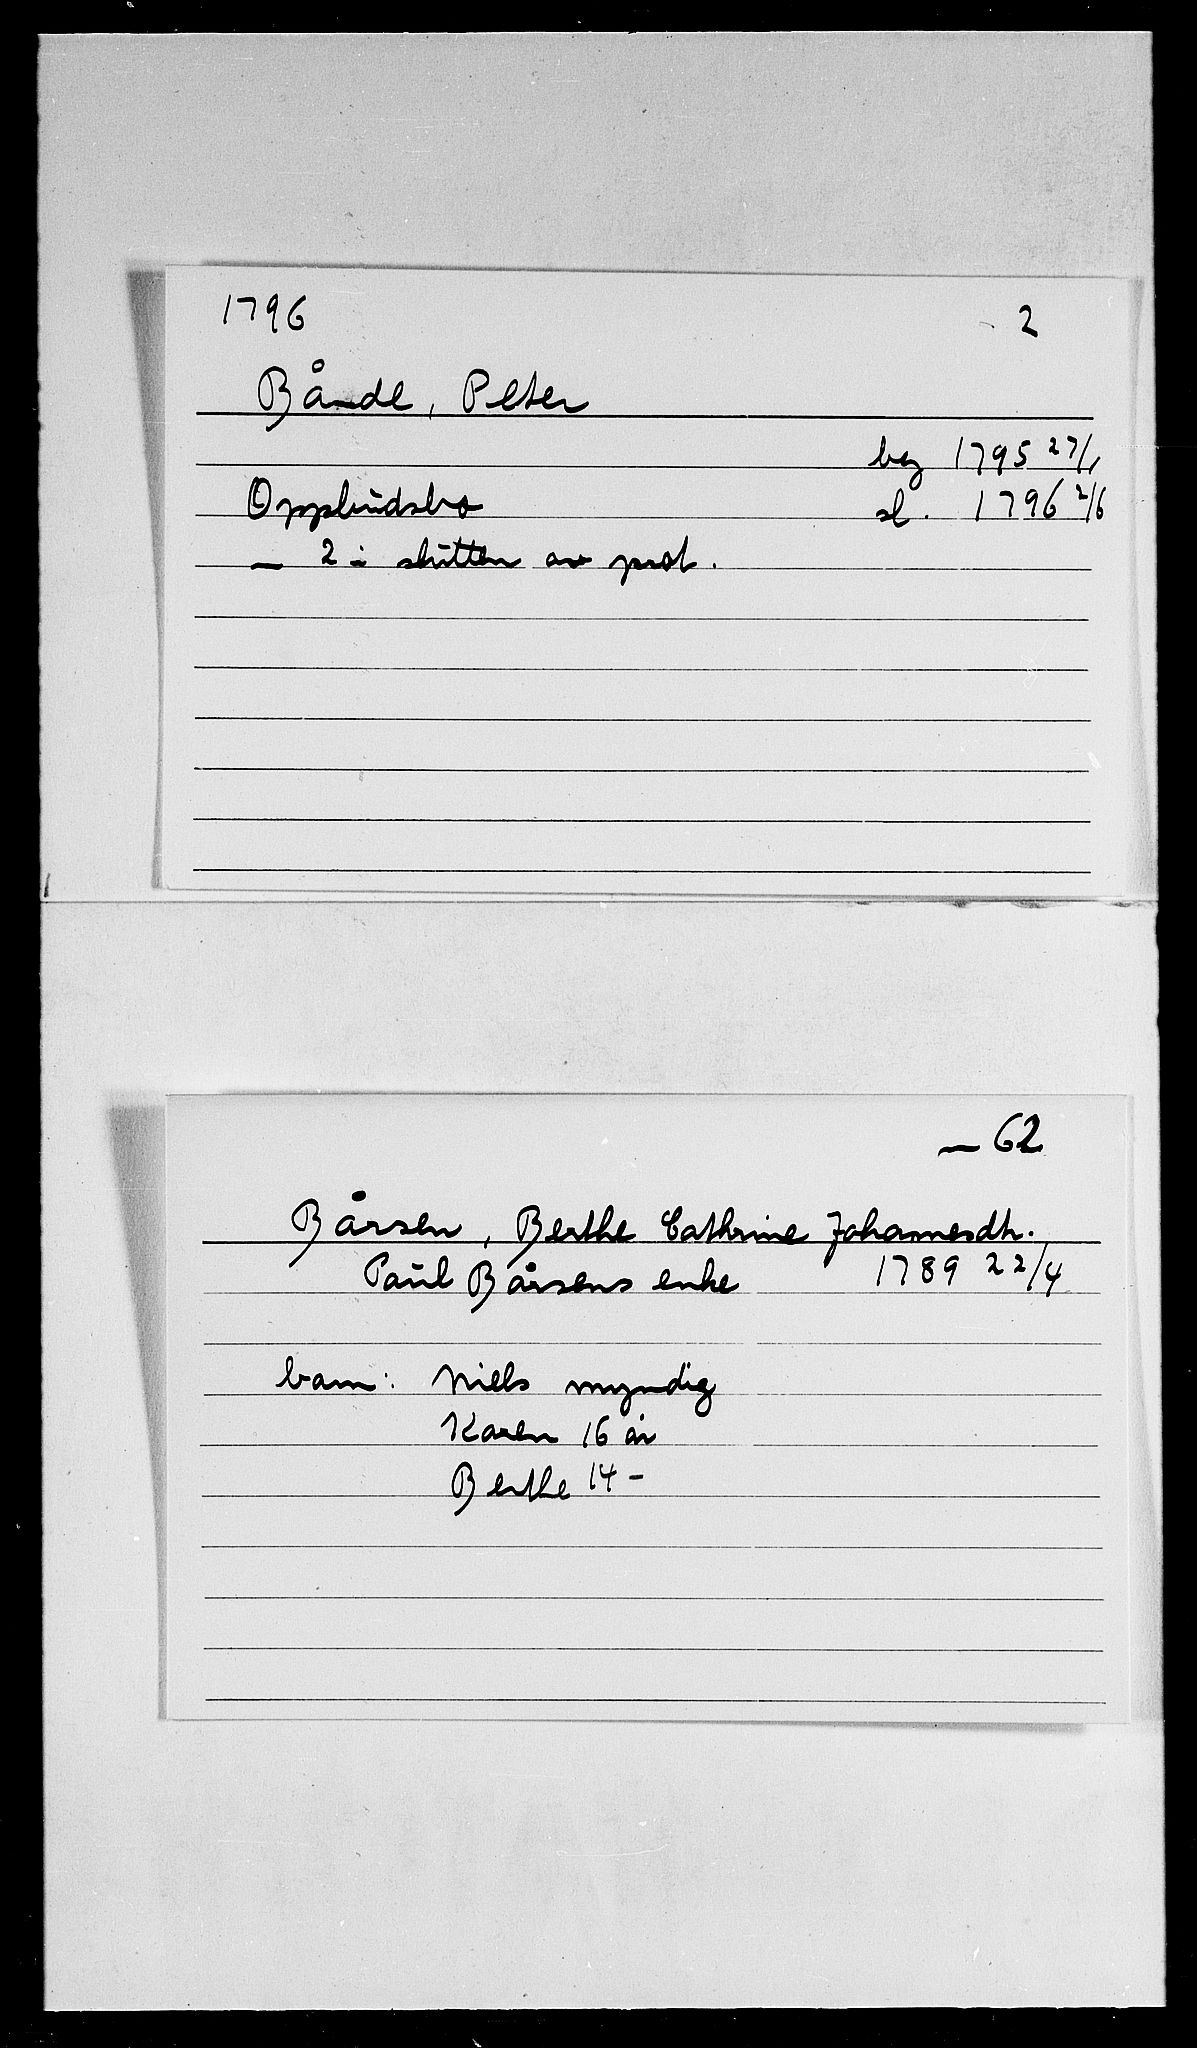 1796 2
Bånde, Peter
beg 1795 27/1
Oppbudsbo sl. 1796 2/6
— 2 i slutten av prot.
— 62
Bårsen, Berthe Cathrine Johannesdtr.
Paul Bårsens enke 1789 22/4
barn: Niels myndig
Karen 16 år
Berthe 14 -